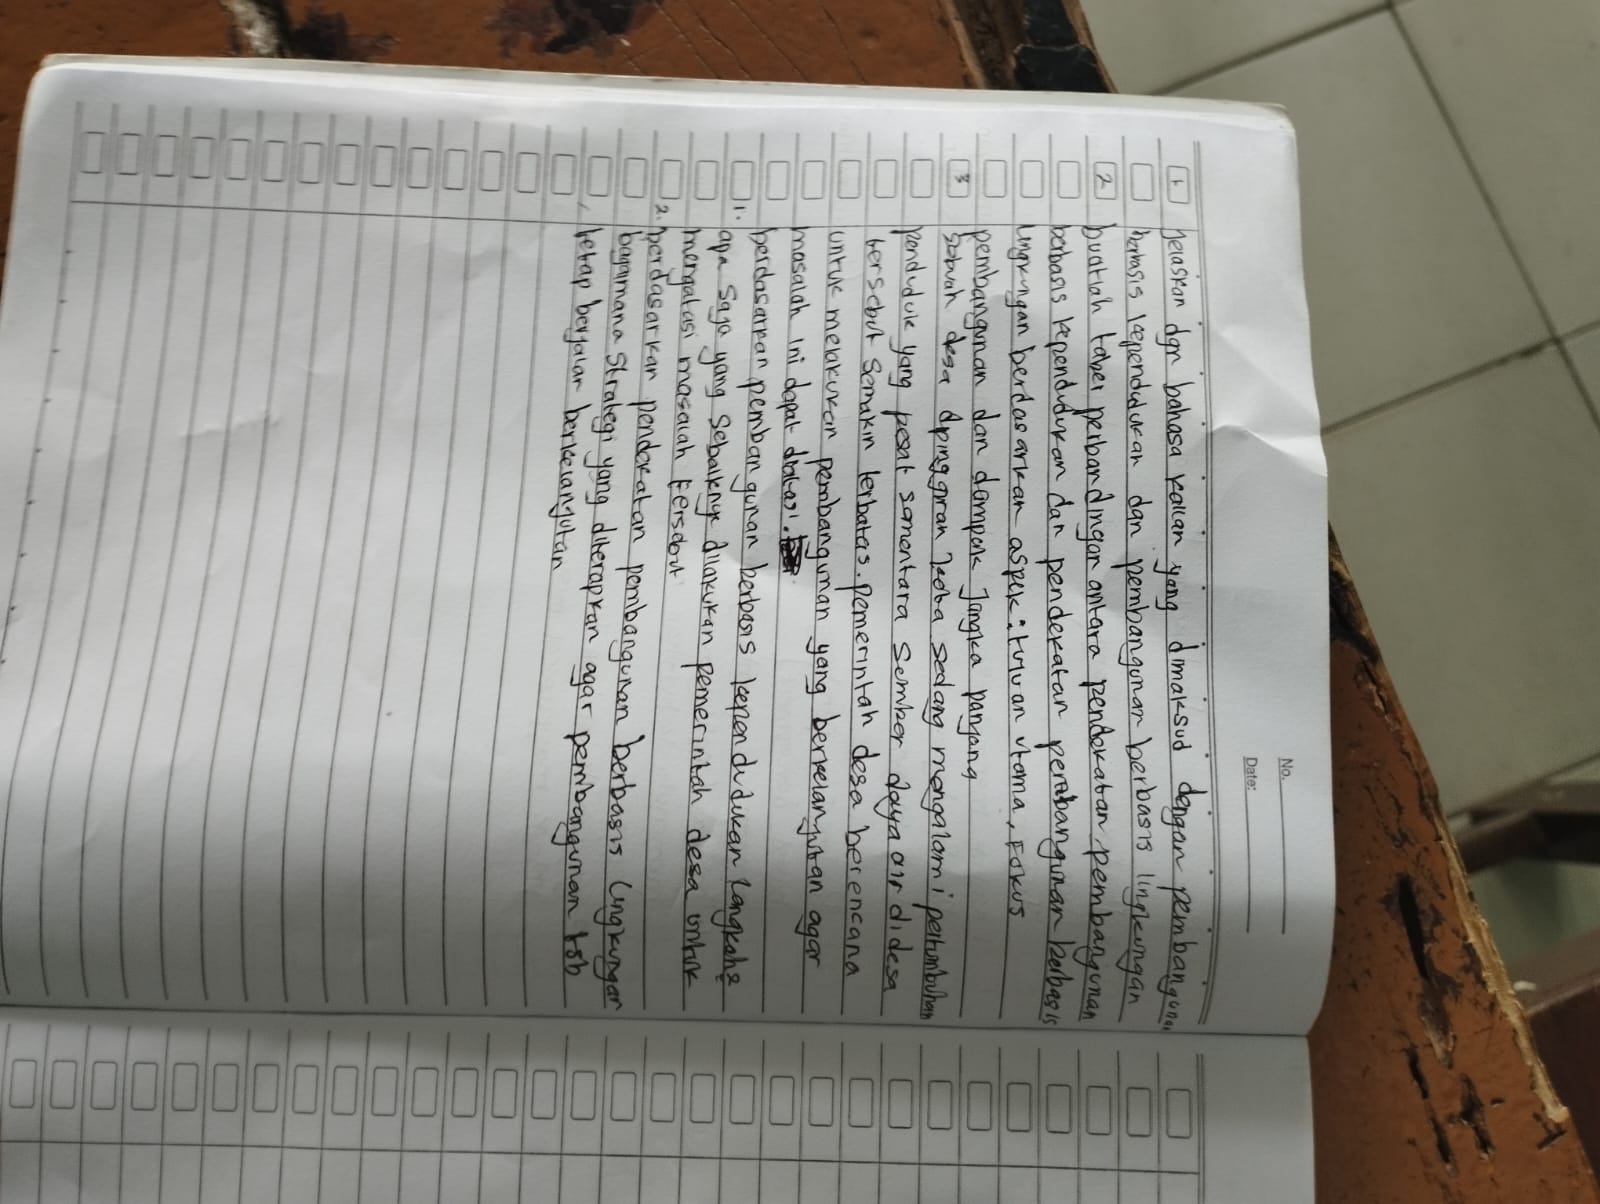 No.
Date:
1 jelaskan dgn bahasa kalian yang dimaksud dengan pembangunan
berbasis kependudukan dgn pembangunan berbasis lingkungan
2 buatlah tabel perbandingan antara pendekatan pembangunan
berbasis kependudukan dan pendekatan pembangunan berbasis
lingkungan berdasarkan aspek : tujuan utama, Fokus
pembangunan dan dampak jangka panjang
3 sebuah desa dipinggiran kota sedang mengalami pertumbuhan
penduduk yang pesat sementara sumber daya air didesa
tersebut semakin terbatas. Pemerintah desa berencana
untuk melakukan pembangunan yang berkelanjutan agar
masalah ini dapat diatasi.
berdasarkan pembangunan berbasis kependudukan langkah2
1. apa saja yang sebaiknya dilakukan pemerintah desa untuk
mengatasi masalah tersebut
2. berdasarkan pendekatan pembangunan berbasis lingkungan
bagaimana strategi yang diterapkan agar pembangunan tsb
tetap berjalan berkelanjutan